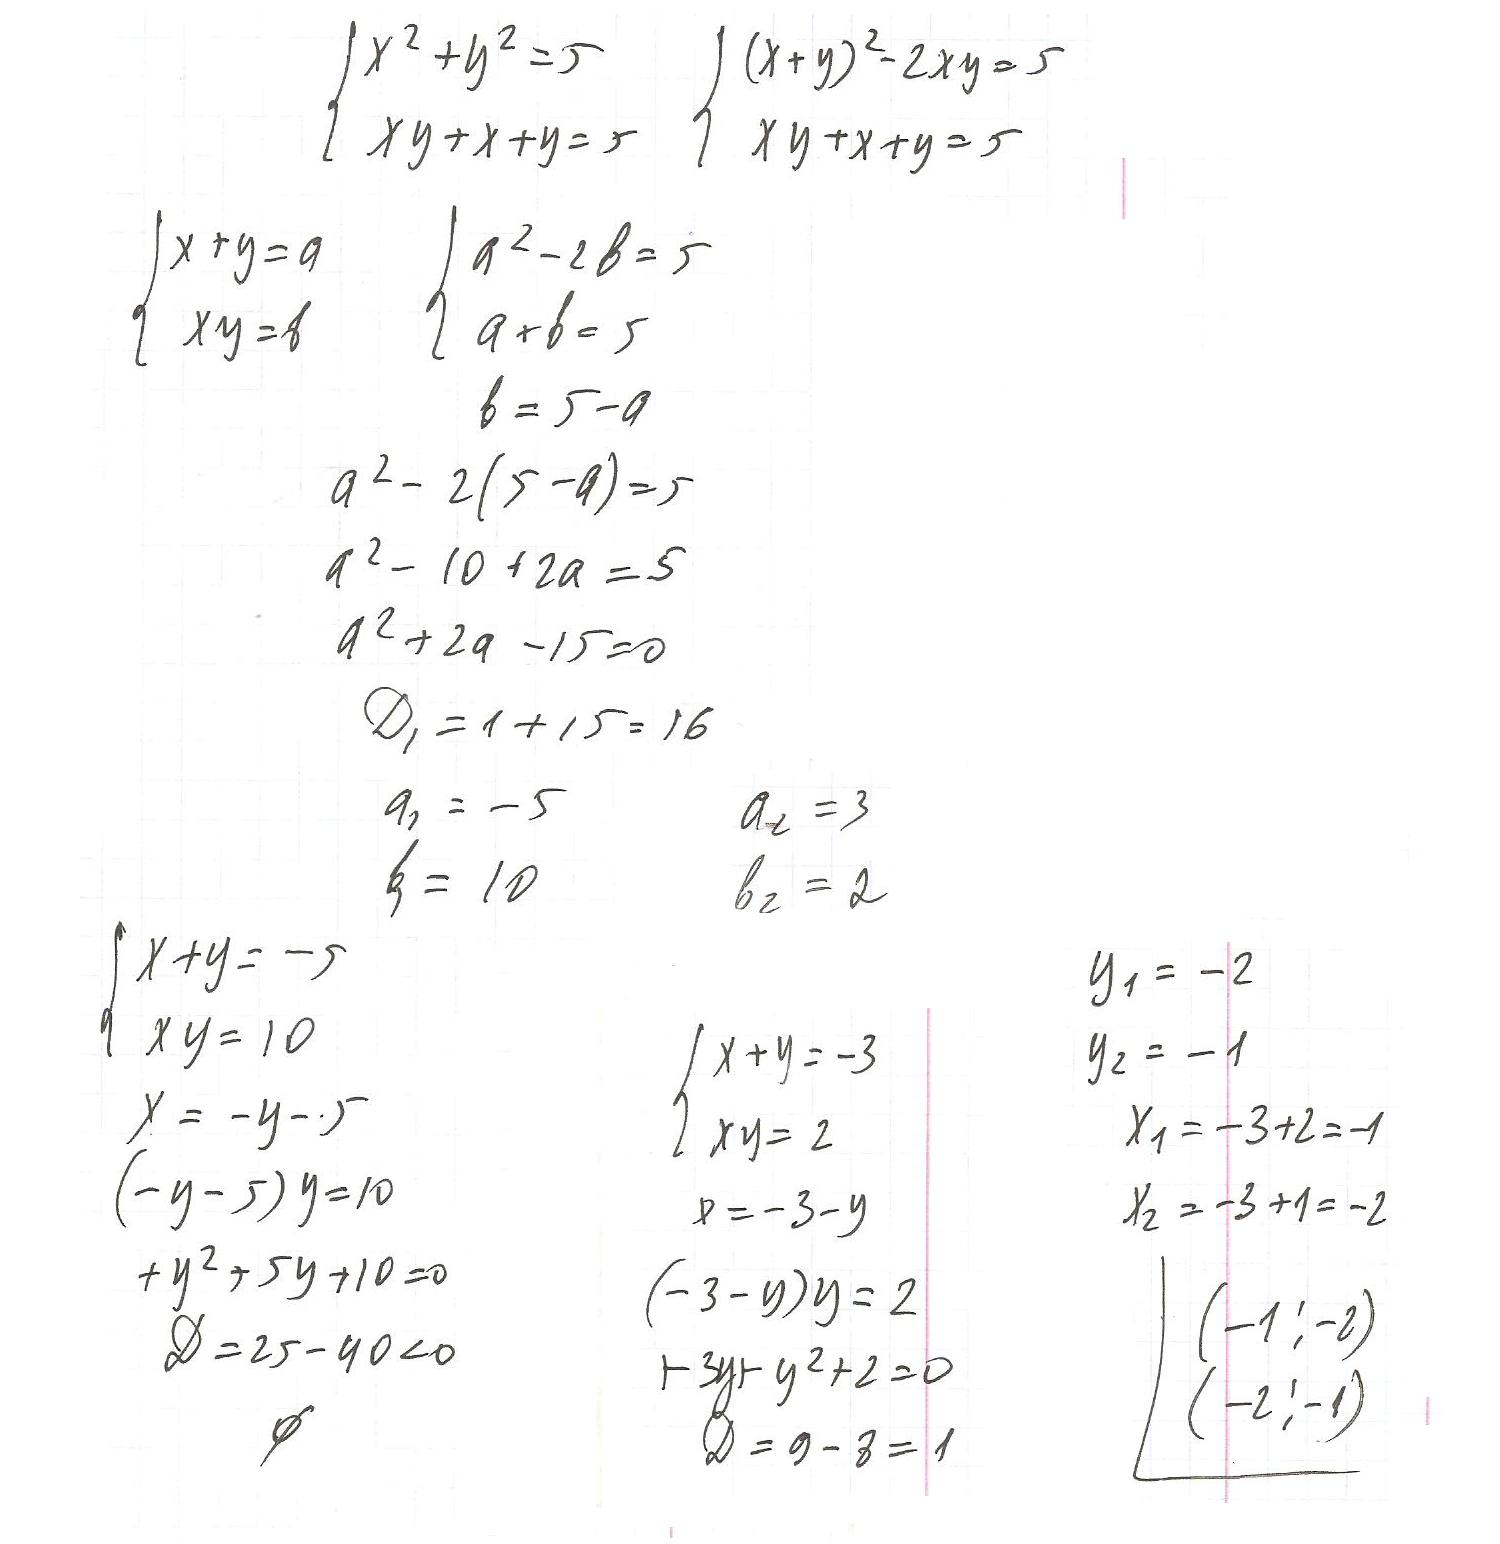 {x² + y² = 5 {(x+y)² - 2xy = 5
xy + x + y = 5 xy + x + y = 5
{x + y = a {a² - 2b = 5
xy = b a + b = 5
b = 5 - a
a² - 2(5 - a) = 5
a² - 10 + 2a = 5
a² + 2a - 15 = 0
D₁ = 1 + 15 = 16
a₁ = -5 a₂ = 3
b = 10 b₂ = 2
{x + y = -5
xy = 10
x = -y - 5
(-y - 5)y = 10
+y² + 5y + 10 = 0
D = 25 - 40 < 0
∅
{x + y = -3
xy = 2
x = -3 - y
(-3 - y)y = 2
+3y + y² + 2 = 0
D = 9 - 8 = 1
y₁ = -2
y₂ = -1
x₁ = -3 + 2 = -1
x₂ = -3 + 1 = -2
(-1; -2)
(-2; -1)